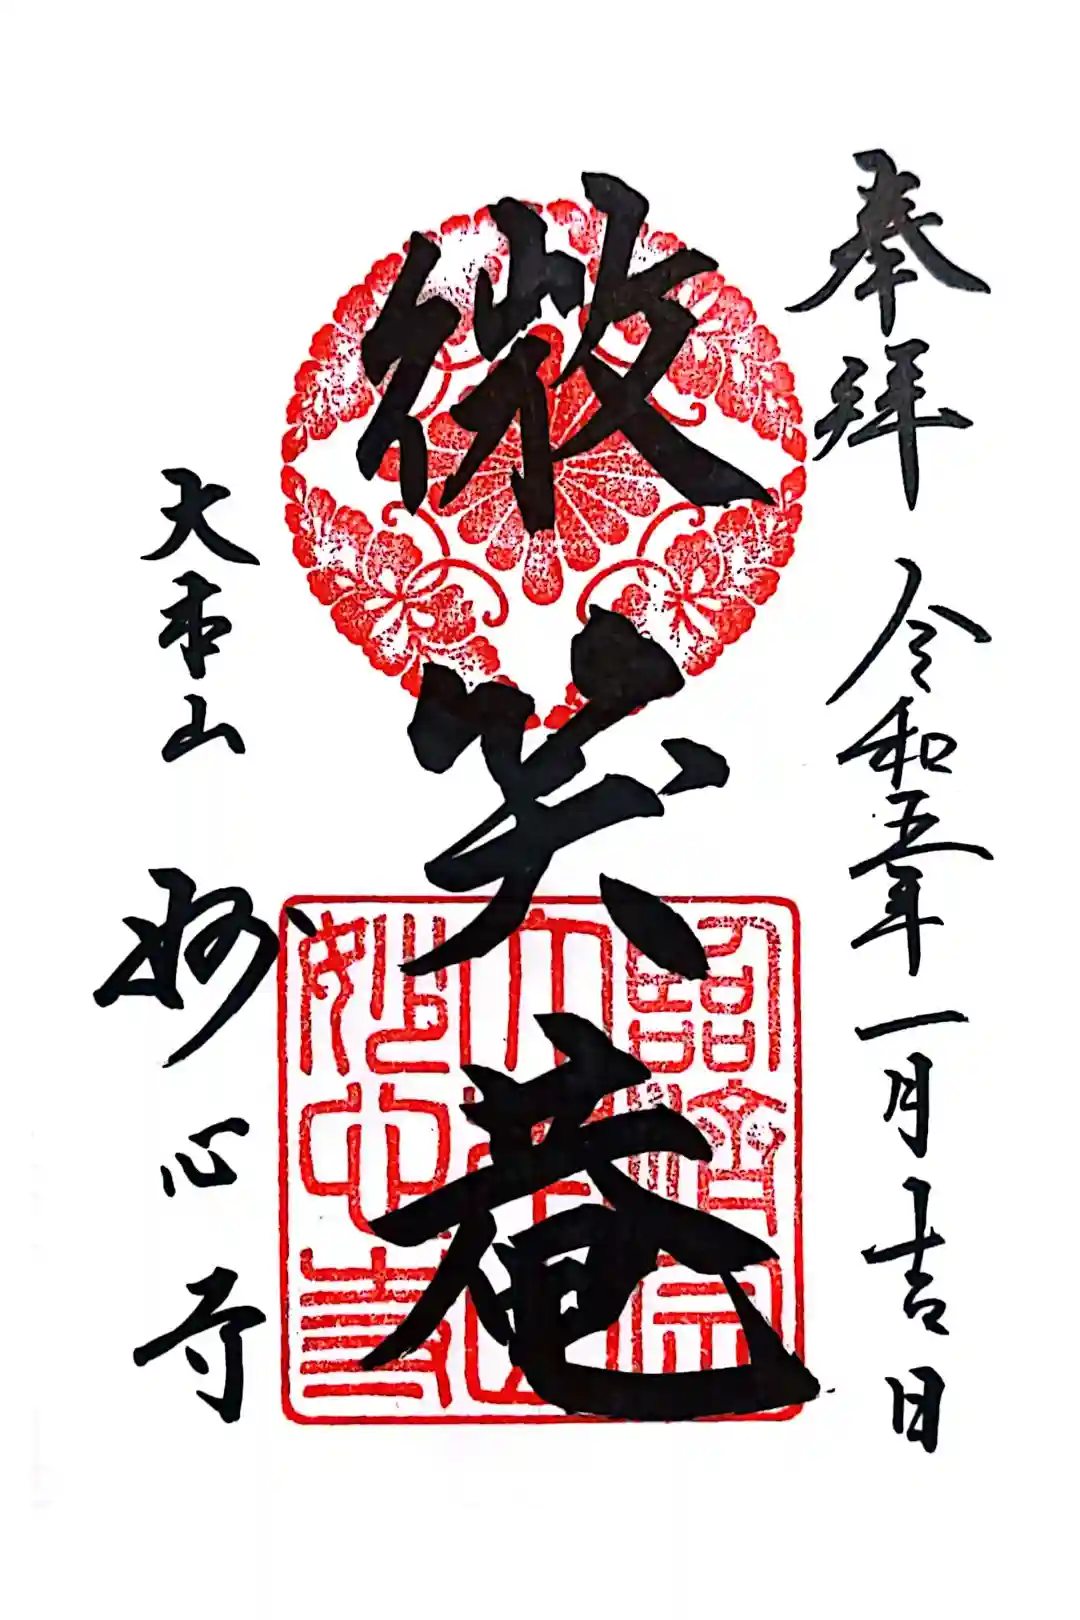 奉拝 令和五年一月吉日
微笑庵
大本山 妙心寺
臨済宗
大本山
妙心寺